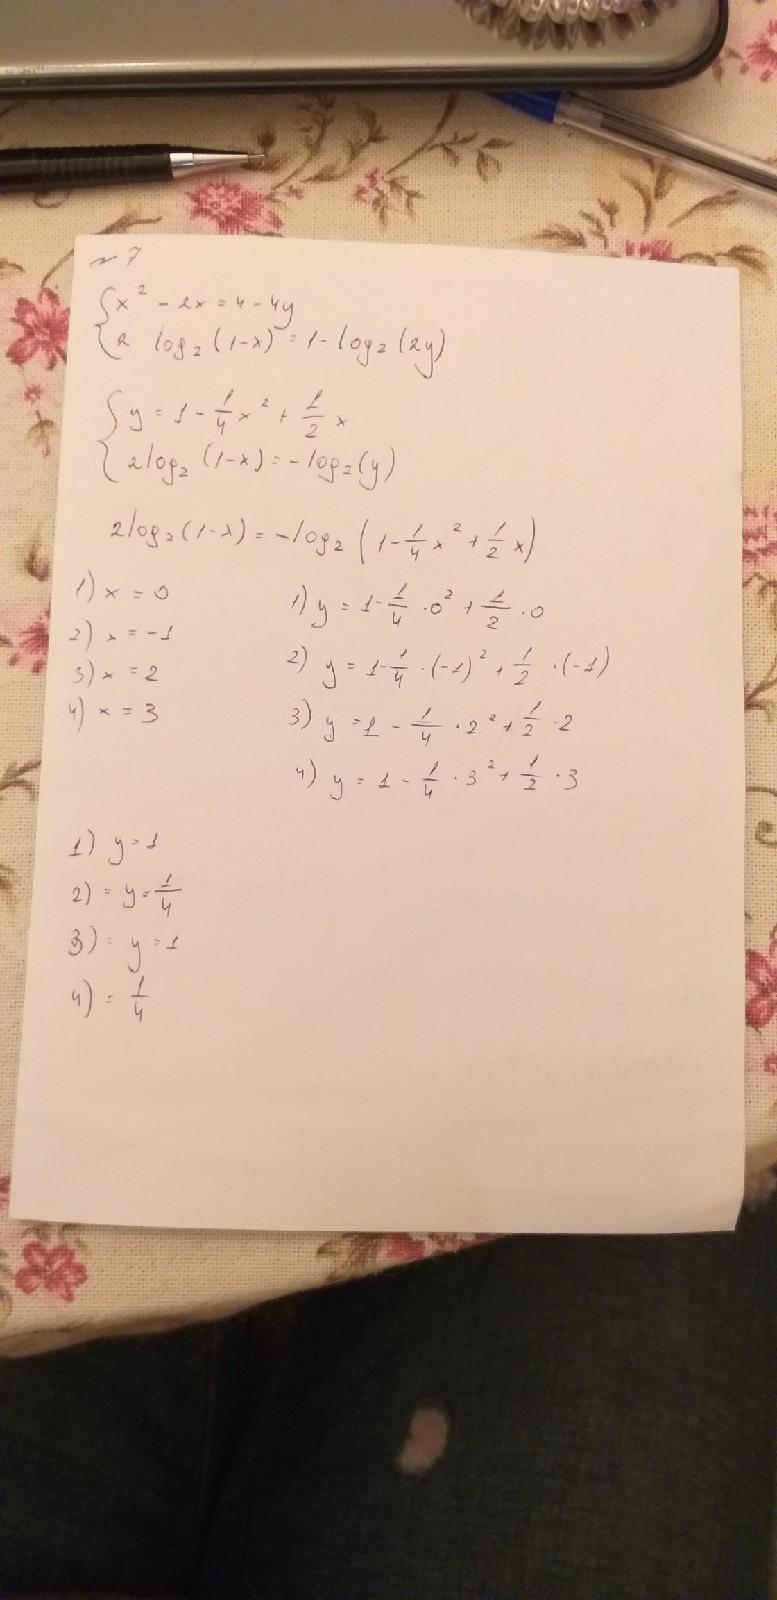 №7
{x² - 2x = 4 - 4y
{2 log₂(1-x) = 1 - log₂(2y)
{y = 1 - 1/4 x² + 1/2 x
{2log₂(1-x) = -log₂(y)
2log₂(1-x) = -log₂(1 - 1/4 x² + 1/2 x)
1) x = 0 1) y = 1 - 1/4 · 0² + 1/2 · 0
2) x = -1 2) y = 1 - 1/4 · (-1)² + 1/2 · (-1)
3) x = 2 3) y = 1 - 1/4 · 2² + 1/2 · 2
4) x = 3 4) y = 1 - 1/4 · 3² + 1/2 · 3
1) y = 1
2) = y = 1/4
3) = y = 1
4) = 1/4